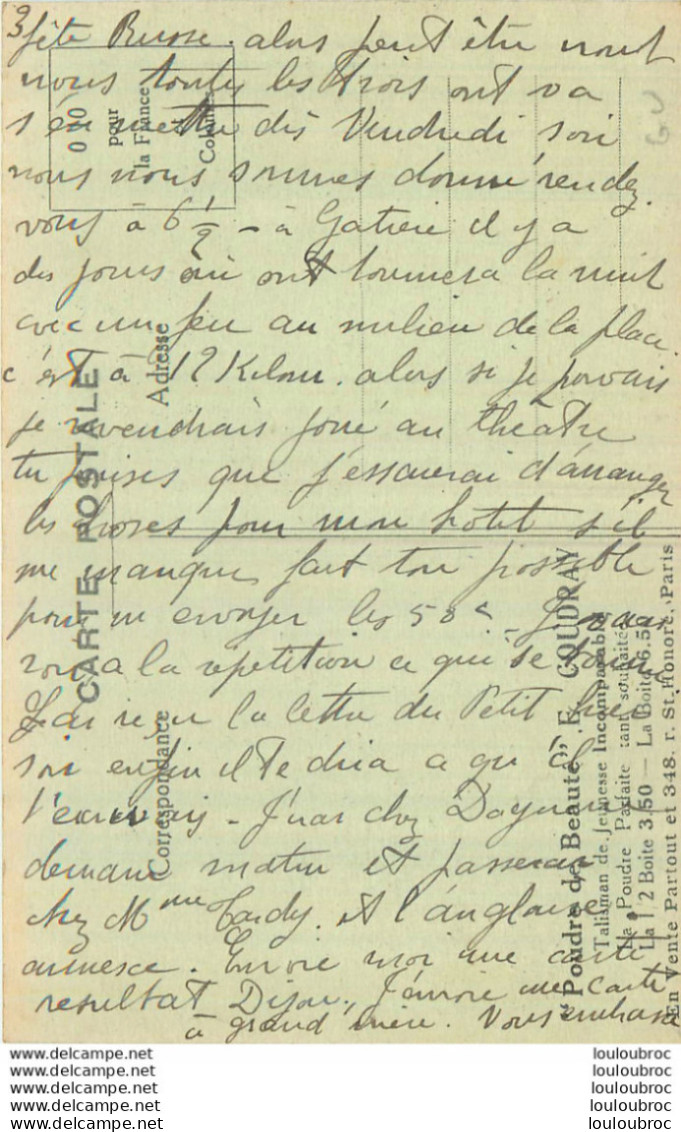 3
fête Russe. alors peut être nont
nous toutes les trois ont va
s'en mettre dès Vendredi soir
nous nous sommes donné rendez.
vous à 6 1/2 - à Gatieri il y a
des jours où ont tournera la nuit
avec un feu au milieu de la place.
c'est à 12 Kilom. alors si je pouvais
je reviendrais joué au théâtre
tu penses que j'essaierai d'arranger
les choses pour mon hotel s'il
me manque fait ton possible
pour m'envoyer les 50
a la répétition ce qui se
J'ai reçu la lettre du Petit hier
soir enfin il te dira a qu'il
J'irai chez
demain matin et passerai
chez Mme Tardy. et l'anglaise
Envoie moi une carte
resultat Dijon, J'envoie une carte
à grand'mère. Vous embrasse
0 00
pour
la France
et
Colonies
G V
CARTE POSTALE
Adresse
Correspondance
"Poudre de Beauté" E. COUDRAY
Talisman de Jeunesse Incomparable
La Poudre Parfaite tant souhaitée
La 1/2 Boite 3.50 — La Boite 6.50
En Vente Partout et 348. r. St. Honoré, Paris
www.delcampe.net louloubroc
www.delcampe.net louloubroc
www.delcampe.net louloubroc
www.delcampe.net louloubroc
www.delcampe.net louloubroc